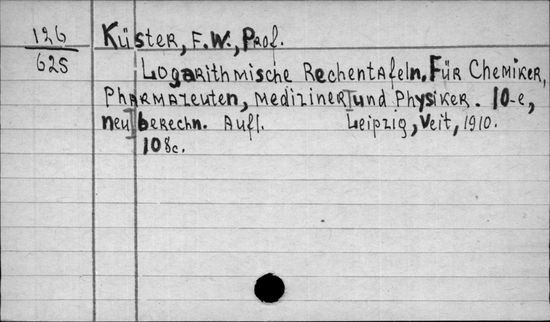 126
625
Küster, F.W., Prof.
Logarithmische Rechentafeln. Für Chemiker,
Pharmazeuten, Mediziner und Physiker. 10-e,
neu berechn. Aufl. Leipzig, Veit, 1910.
108c.